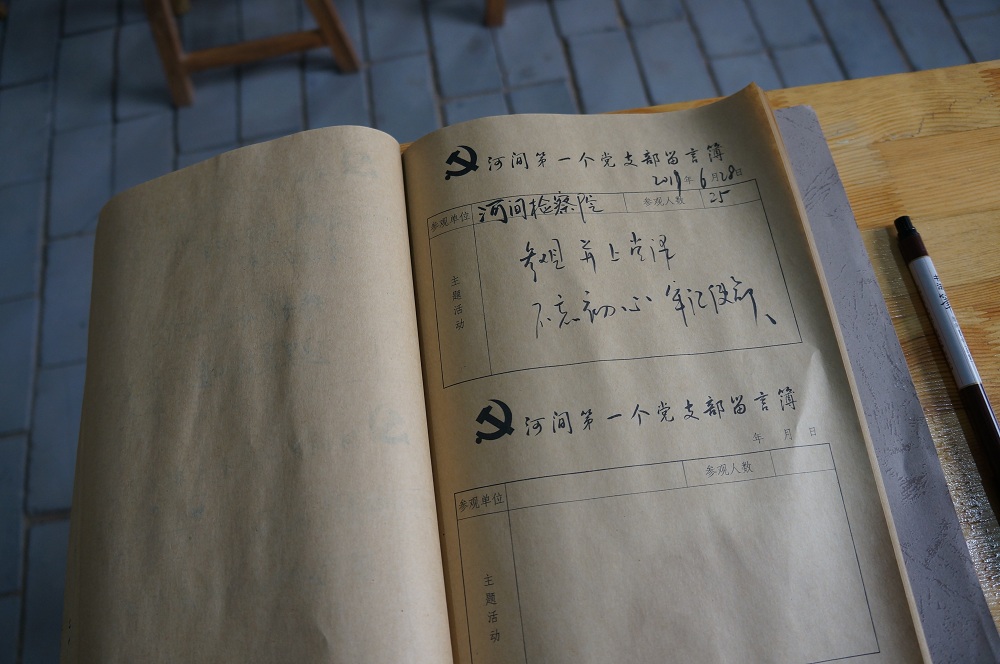 河间第一个党支部留言簿
2019年6月28日
参观单位 河间检察院 参观人数 25
主题活动
参观 并上党课
不忘初心 牢记使命
河间第一个党支部留言簿
年 月 日
参观单位 参观人数
主题活动